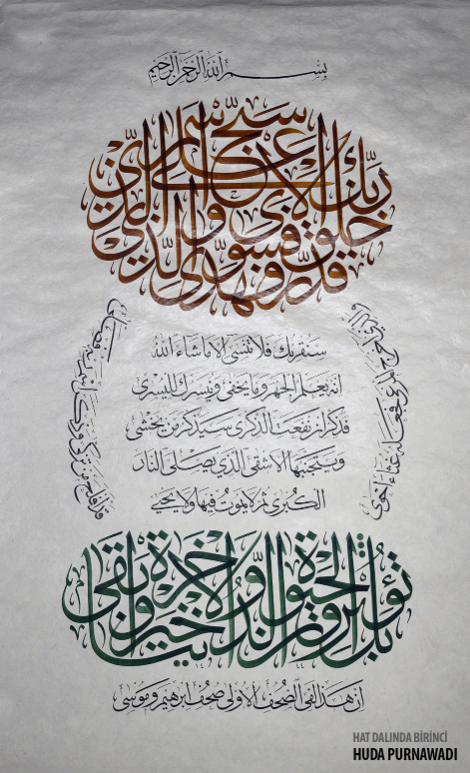 بسم الله الرحمن الرحيم
سبح اسم ربك الأعلى الذي خلق فسوى والذي قدر فهدى
والذي أخرج المرعى فجعله غثاء أحوى
سنقرئك فلا تنسى إلا ما شاء الله
إنه يعلم الجهر وما يخفى ونيسرك لليسرى
فذكر إن نفعت الذكرى سيذكر من يخشى
ويتجنبها الأشقى الذي يصلى النار
الكبرى ثم لا يموت فيها ولا يحيى
قد أفلح من تزكى وذكر اسم ربه فصلى
بل تؤثرون الحيوة الدنيا والآخرة خير وأبقى
إن هذا لفي الصحف الأولى صحف إبرهيم وموسى
HAT DALINDA BİRİNCİ
HUDA PURNAWADI